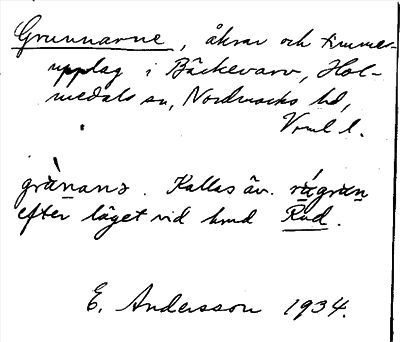 Grunnarne, åkrar och timmer-
upplag i Bäckevarv, Hol-
medals sn, Nordmarks hd,
Vrml l.
grànanə. Kallas äv. rágran
efter läget vid hmd Råd.
E. Andersson 1934.